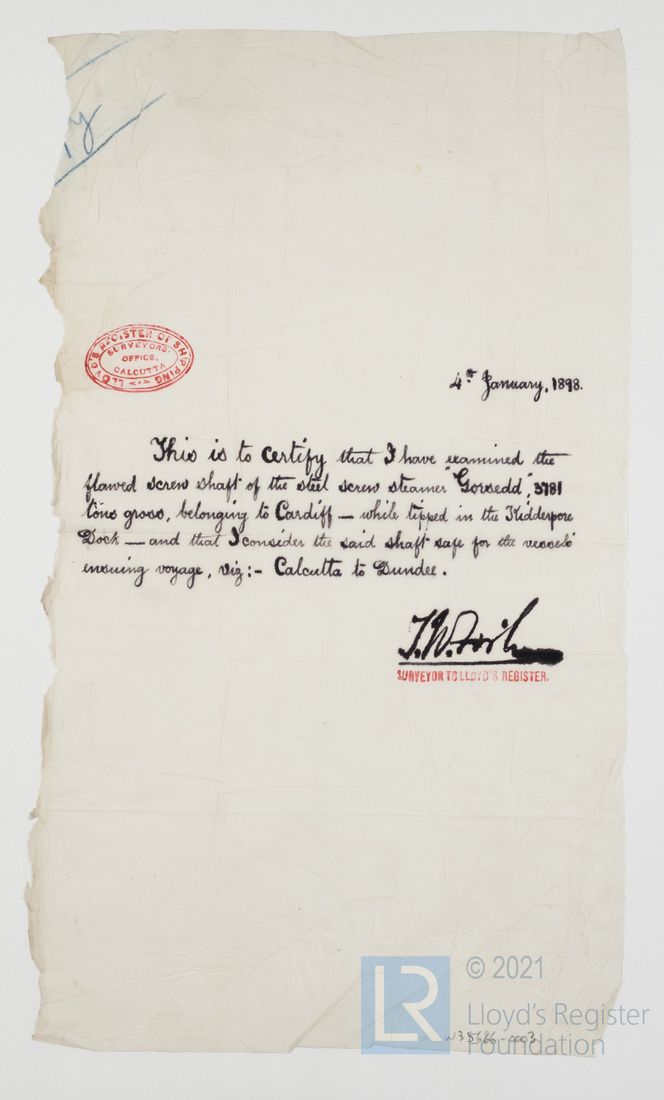 LLOYD'S REGISTER OF SHIPPING
SURVEYORS'
OFFICE,
CALCUTTA
4th January, 1898.
This is to certify that I have examined the
flawed screw shaft of the steel screw steamer "Gorsedd", 3781
tons gross, belonging to Cardiff — while tipped in the Kidderpore
Dock — and that I consider the said shaft safe for the vessels'
ensuing voyage, viz:- Calcutta to Dundee.
T.W.
SURVEYOR TO LLOYD'S REGISTER.
LR
© 2021
Lloyd's Register
Foundation
W35686-0003